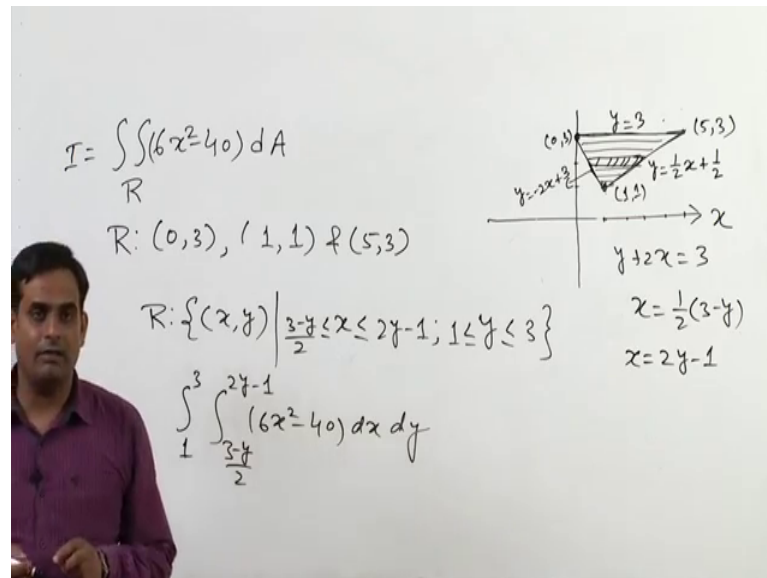 I = ∫∫(6x²-40) dA
R
R: (0,3), (1,1) & (5,3)
R: {(x,y) | 3-y/2 ≤ x ≤ 2y-1; 1 ≤ y ≤ 3}
∫₁³ ∫_{3-y/2}^{2y-1} (6x²-40) dx dy
y=3
(0,3)
(5,3)
y=-2x+3
y=1/2x+1/2
(1,1)
x
y+2x=3
x=1/2(3-y)
x=2y-1